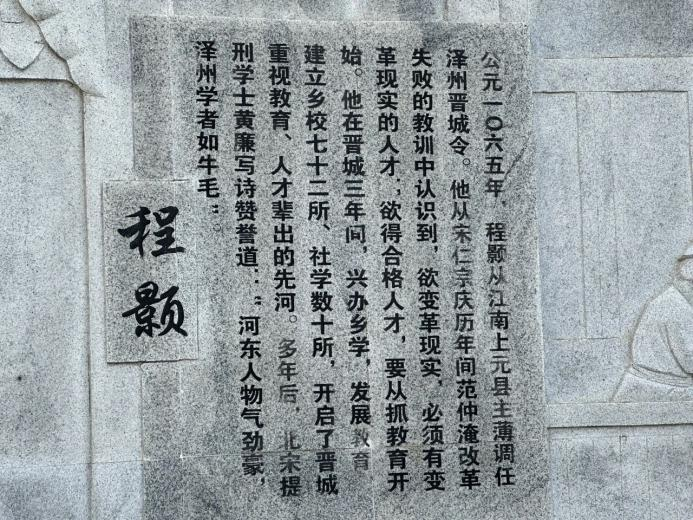 公元一〇六五年，程颢从江南上元县主薄调任
泽州晋城令。他从宋仁宗庆历年间范仲淹改革
失败的教训中认识到，欲变革现实，必须有变
革现实的人才；欲得合格人才，要从抓教育开
始。他在晋城三年间，兴办乡学，发展教育
建立乡校七十二所、社学数十所，开启了晋城
重视教育、人才辈出的先河。多年后，北宋提
刑学士黄廉写诗赞誉道：“河东人物气劲豪，
泽州学者如牛毛”。
程颢